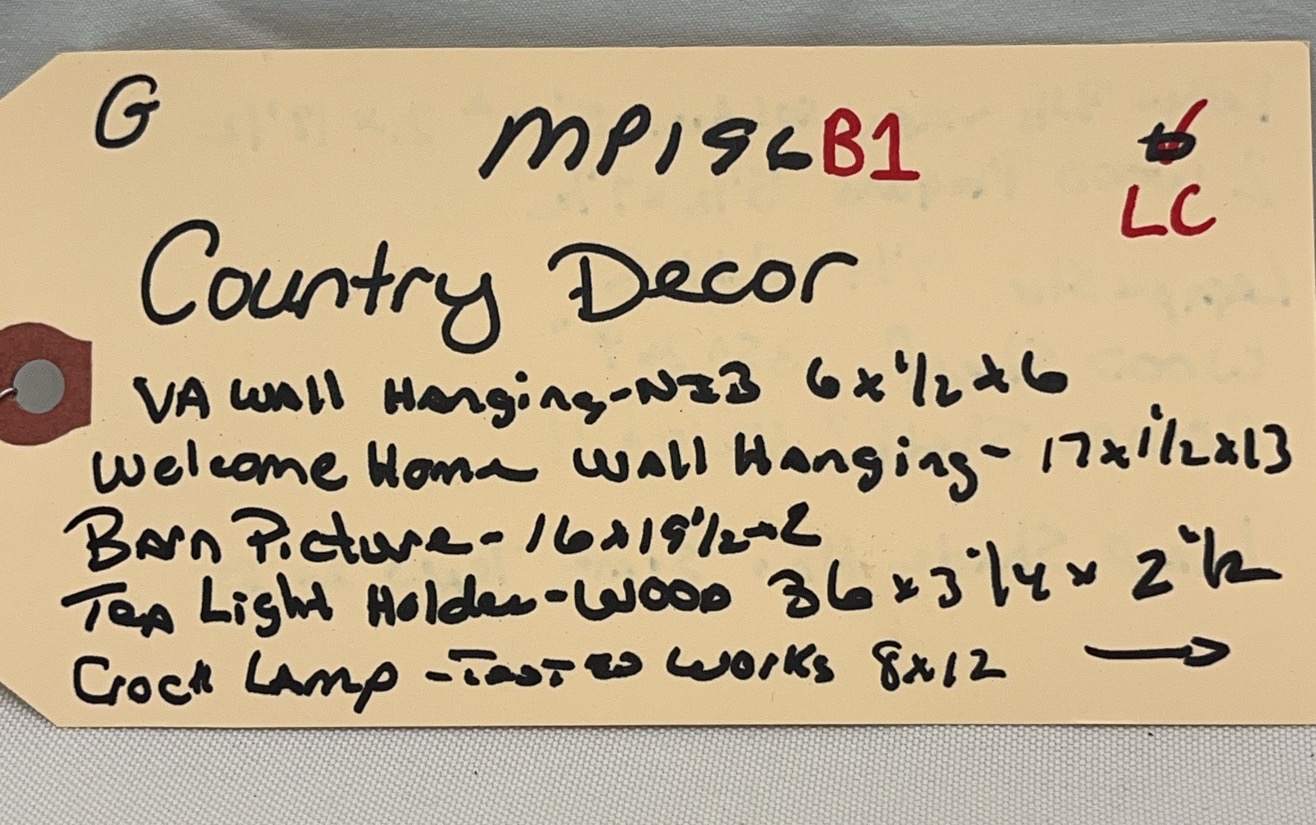 G
MP196B1
6
LC
Country Decor
VA Wall Hanging-NIB 6x1/2x6
Welcome Home Wall Hanging- 17x1 1/2x13
Barn Picture- 16x19 1/2x2
Tea Light Holder-Wood 36x3 1/4x 2 1/2
Crock Lamp -Tested Works 8x12 →